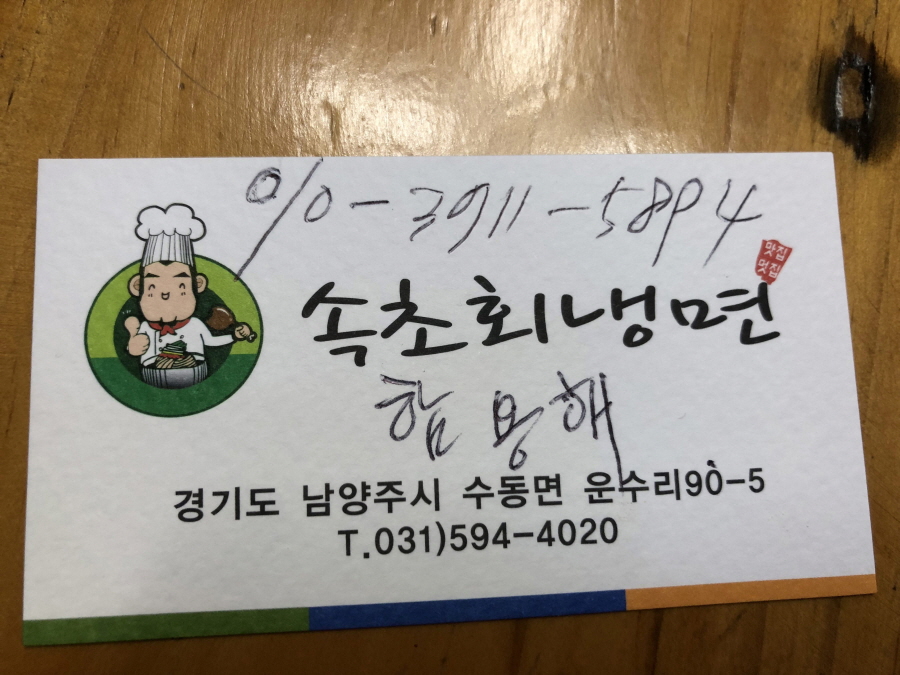 010-3911-5894
맛집
멋집
속초회냉면
함용해
경기도 남양주시 수동면 운수리90-5
T.031)594-4020